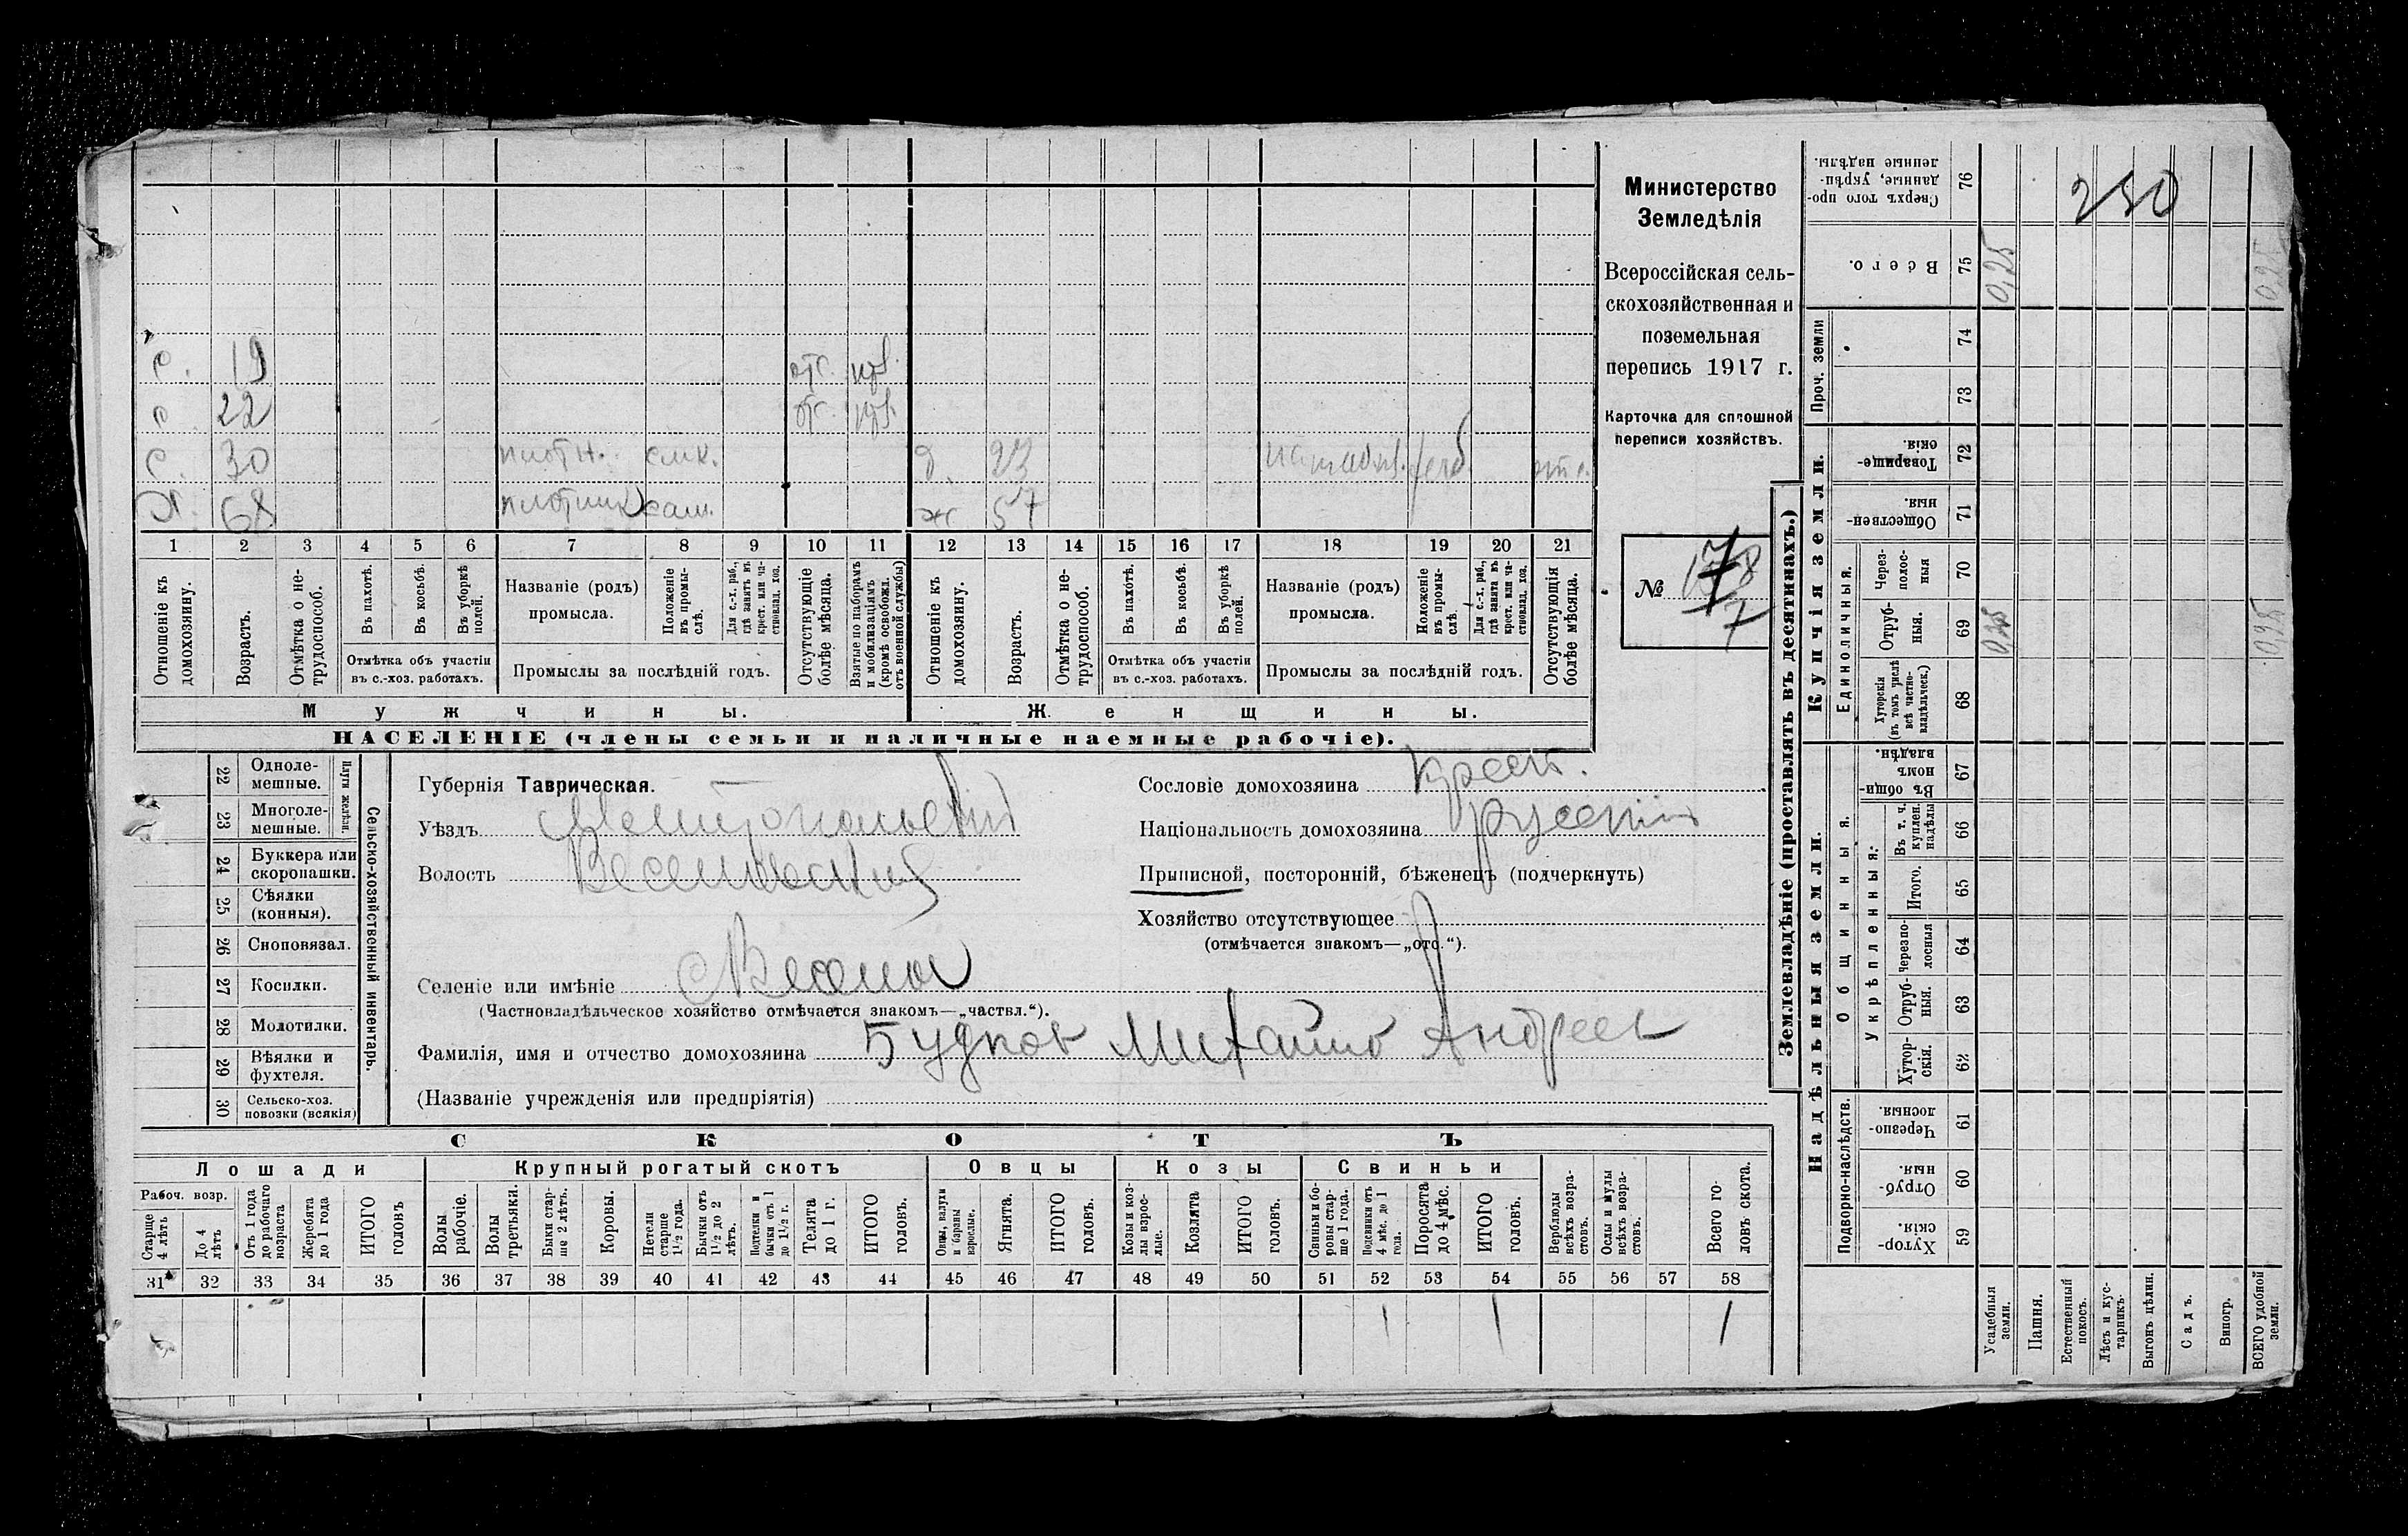 с. 19 отс. изв.
с 22 отс. изв.
с. 30 плотн. д. 23 отс.
Х. 68 плотник сам. ж 57
1 2 3 4 5 6 7 8 9 10 11 12 13 14 15 16 17 18 19 20 21
Отношеніе къ домохозяину.
Возрастъ.
Отмѣтка о не-трудоспособ.
Въ пахотѣ.
Въ косьбѣ.
Въ уборкѣ полей.
Отмѣтка объ участіи въ с.-хоз. работахъ.
Названіе (родъ) промысла.
Положеніе въ промы-слѣ.
Для с.-х. раб., гдѣ занятъ въ крест. или ча-стновлад. хоз.
Промыслы за послѣдній годъ.
Отсутствующіе болѣе мѣсяца.
Взятые по наборамъ и мобилизаціямъ (кромѣ освобожд. отъ военной службы)
Отношеніе къ домохозяину.
Возрастъ.
Отмѣтка о не-трудоспособ.
Въ пахотѣ.
Въ косьбѣ.
Въ уборкѣ полей.
Отмѣтка объ участіи въ с.-хоз. работахъ.
Названіе (родъ) промысла.
Положеніе въ промы-слѣ
Для с.-х. раб., гдѣ занята въ крест. или ча-стновлад. хоз.
Промыслы за послѣдній годъ.
Отсутствующія болѣе мѣсяца.
Мужчины.
Женщины.
НАСЕЛЕНІЕ (члены семьи и наличные наемные рабочіе).
Министерство
Земледѣлія
Всероссійская сель-
скохозяйственная и
поземельная
перепись 1917 г.
Карточка для сплошной
переписи хозяйствъ.
№ 178
77
22 Одноле-мешные.
23 Многоле-мешные.
Плуги желѣзн.
24 Буккера или скоропашки.
25 Сѣялки (конныя).
26 Сноповязал.
27 Косилки.
28 Молотилки.
29 Вѣялки и фухтеля.
30 Сельско-хоз. повозки (всякія)
Сельско-хозяйственный инвентарь.
Губернія Таврическая.
Уѣздъ Мелитопольскій
Волость Веселовская
Селеніе или имѣніе Веселое
(Частновладѣльческое хозяйство отмѣчается знакомъ—„частвл.“).
Фамилія, имя и отчество домохозяина Будков Михайло Андреев
(Названіе учрежденія или предпріятія)
Сословіе домохозяина крест.
Національность домохозяина русский
Приписной, посторонній, бѣженецъ (подчеркнуть)
Хозяйство отсутствующее
(отмѣчается знакомъ—„отс.“).
СКОТЪ
Лошади
Рабоч. возр.
Старше 4 лѣтъ
До 4 лѣтъ
Отъ 1 года до рабочаго возраста
Жеребята до 1 года
ИТОГО головъ
Крупный рогатый скотъ
Волы рабочіе.
Волы третьяки.
Быки стар-ше 2 лѣтъ.
Коровы.
Нетели старше 1½ года.
Бычки отъ 1½ до 2 лѣтъ.
Подтелки и бычки отъ 1 до 1½ г.
Телята до 1 г.
ИТОГО головъ.
Овцы
Овцы, валухи и бараны взрослые.
Ягнята.
ИТОГО головъ.
Козы
Козы и коз-лы взрос-лые.
Козлята
ИТОГО головъ.
Свиньи
Свиньи и бо-ровы стар-ше 1 года.
Подсвинки отъ 4 мѣс. до 1 года.
Поросята до 4 мѣс.
ИТОГО головъ.
Верблюды всѣхъ возра-стовъ.
Ослы и мулы всѣхъ возра-стовъ.
Всего го-ловъ скота.
31 32 33 34 35 36 37 38 39 40 41 42 43 44 45 46 47 48 49 50 51 52 53 54 55 56 57 58
1 1 1
Землевладѣніе (проставлять въ десятинахъ.)
Купчія земли.
Надѣльныя земли.
Проч. земли
Единоличныя.
Общинныя.
Укрѣпленныя:
Подворно-наслѣдств.
76 Сверхъ того про-данные, укрѣп-ленные надѣлы.
75 Всего.
74
73
72 Товарище-скія.
71 Обществен-ныя
70 Через-полос-ныя
69 Отруб-ныя.
68 Хуторскія (въ томъ числѣ всѣ частно-владѣльческ.)
67 Въ общи-номъ владѣн.
66 Въ т. ч. куплен. надѣлы
65 Итого.
64 Черезпо-лосныя
63 Отруб-ныя.
62 Хутор-скія.
61 Черезпо-лосныя.
60 Отруб-ныя.
59 Хутор-скія
230
0,25 0,25
0,25 0,25
Усадебныя земли.
Пашня.
Естественный покосъ.
Лѣсъ и кус-тарникъ.
Выгонъ цѣлин.
Садъ.
Виногр.
ВСЕГО удобной земли.